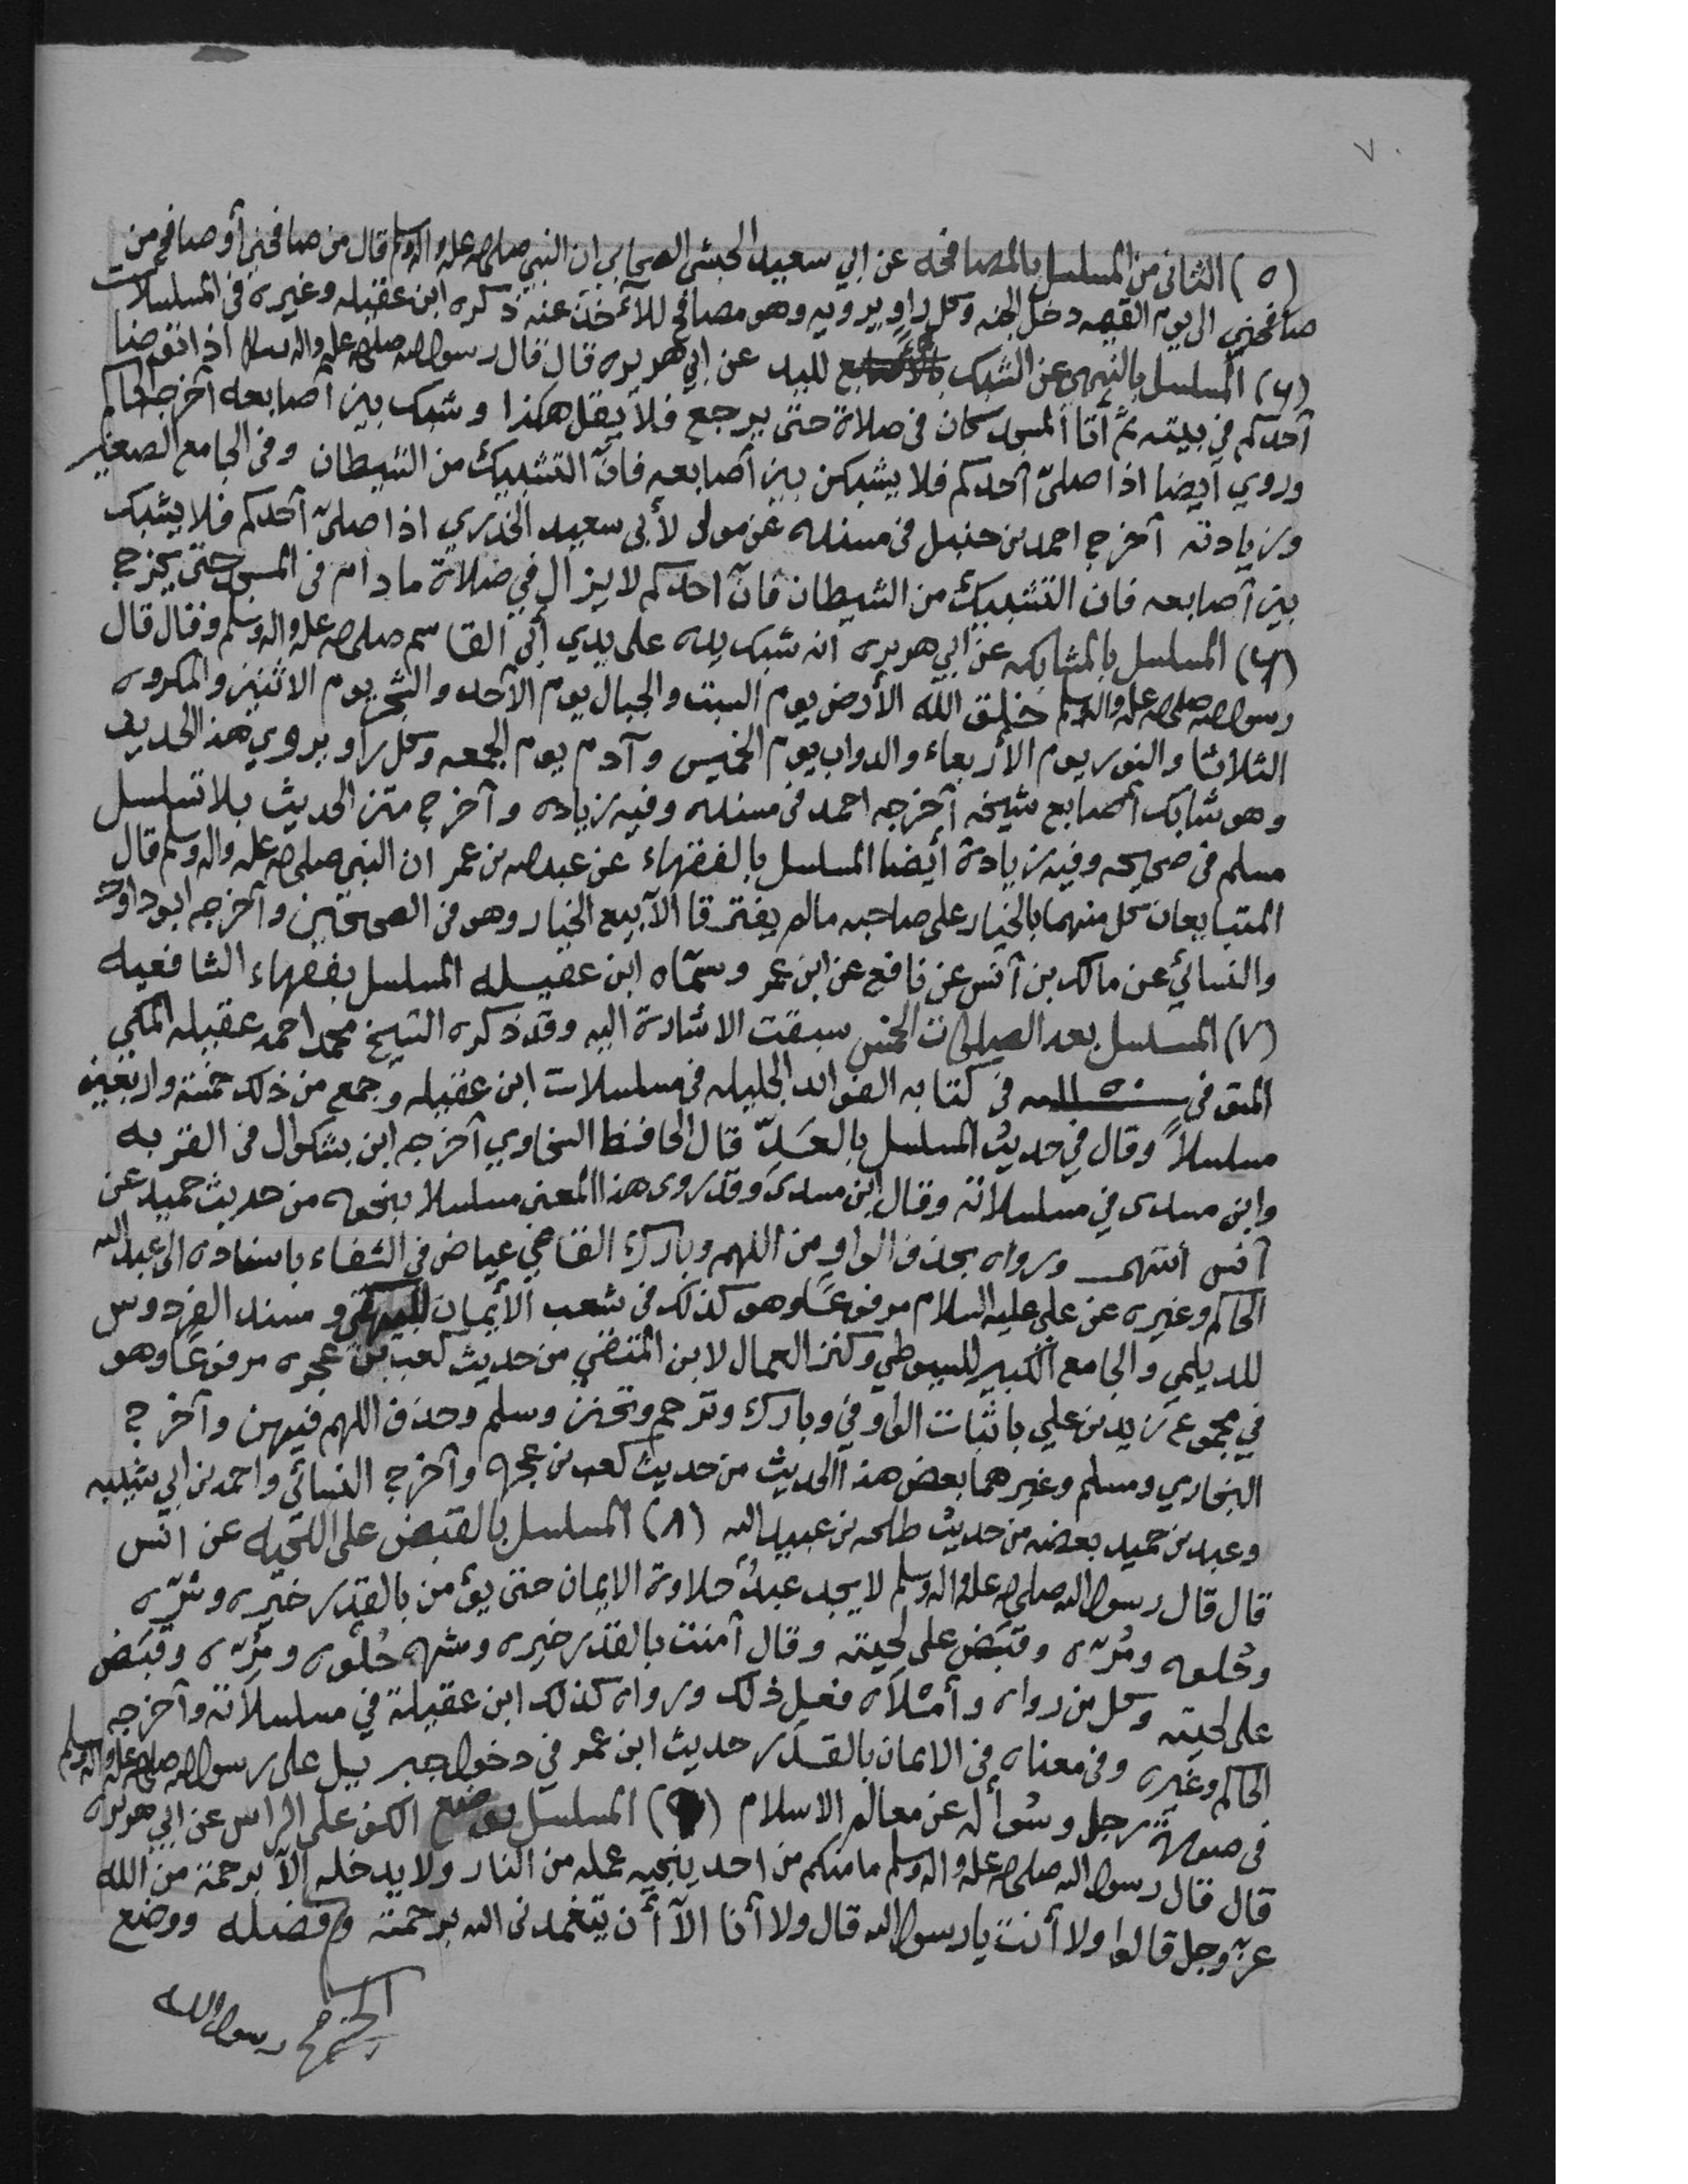 ٧٠
(٥) الثاني من المسلسل بالمصافحه عن ابي سعيد الحبشي الصحابي ان النبي صلى الله عليه واله وسلم قال من صافحني أو صافح من
صافحني الى يوم القيمه دخل الجنه وكل راوٍ يرويه وهو مصافح للآخذ عنه ذكره ابن عقيله وغيره في المسلسلات
(٦) المسلسل بالنهي عن الشبك بالأصابع لليد عن ابي هريره قال قال رسول الله صلى الله عليه واله وسلم اذا توضا
أحدكم في بيته ثم أتا المسجد كان في صلاة حتى يرجع فلا يقل هكذا وشبك بين أصابعه أخرجه الحاكم
وروي أيضا اذا صلىّ أحدكم فلا يشبكن بين أصابعه فانّ التشبيك من الشيطان وفي الجامع الصغير
وزيادته أخرج احمد بن حنبل في مسنده عن مولى لأبي سعيد الخدري اذا صلىّ أحدكم فلا يشبك
بين أصابعه فان التشبيك من الشيطان فانّ احدكم لا يزال في صلاة ما دام في المسجد حتى يخرج
(٦) المسلسل بالمشابكه عن ابي هريره انه شبك يده على يدي أبي القاسم صلى الله عليه واله وسلم وقال قال
رسول الله صلى الله عليه واله وسلم خلق الله الأرض يوم السبت والجبال يوم الأحد والشجر يوم الاثنين والمكروه
الثلاثا والنور يوم الأربعاء والدواب يوم الخميس وآدم يوم الجمعه وكل راو يروي هذا الحديث
وهو شابك أصابع شيخه أخرجه احمد في مسنده وفيه زياده وأخرج متن الحديث بلا تسلسل
مسلم في صحيحه وفيه زيادة أيضا المسلسل بالفقهاء عن عبد الله بن عمر ان النبي صلى الله عليه واله وسلم قال
المتبايعان كل منهما بالخيار على صاحبه مالم يفترقا الآ بيع الخيار وهو في الصحيحين وأخرجه ابو داود
والنسائي عن مالك بن أنس عن نافع عن ابن عمر وسمّاه ابن عقيله المسلسل بفقهاء الشافعيه
(٧) المسلسل بعد الصلوات الخمس سبقت الاشارة اليه وقد ذكره الشيخ محمد احمد عقيله المكي
المتوفي سنة في كتابه الفوائد الجليله في مسلسلات ابن عقيله وجمع من ذلك خمسة واربعين
مسلسلاً وقال في حديث المسلسل بالعدّ قال الحافظ السخاوي أخرجه ابن بشكوال في القربه
وابن مسدى في مسلسلاته وقال ابن مسدى وقد روى هذا المعنى مسلسلا بنحوه من حديث حميد عن
أنس انتهى ورواه بحذف الواو من اللهم وبارك القاضي عياض في الشفاء باسناده الى عبد الله
الحاكم وغيره عن علي عليه السلام مرفوعًا وهو كذلك في شعب الأيمان للبيهقي ومسند الفردوس
للديلمي والجامع الكبير للسيوطي وكنز العمال لابن المتقي من حديث كعب بن عجره مرفوعًا وهو
في مجموع زيد بن علي باثبات الواو في وبارك وترحم وتحنن وسلم وحذف اللهم فيهن وأخرج
البخاري ومسلم وغيرهما بعض هذا الحديث من حديث كعب بن عجره وأخرج النسائي واحمد بن ابي شيبه
وعبد بن حميد بعضه من حديث طلحه بن عبيد الله (٨) المسلسل بالقبض على اللحيه عن انس
قال قال رسول الله صلى الله عليه واله وسلم لا يجد عبدٌ حلاوة الايمان حتى يؤمن بالقدر خيره وشرّه
وحُلوه ومُرّه وقبَض على لحيته وقال آمنت بالقدر خيره وشره حُلوه ومُرّه وقبَض
على لحيته وكل من رواه وأمْلاَه فعل ذلك ورواه كذلك ابن عقيلة في مسلسلاته وأخرجه
الحاكم وغيره وفي معناه في الايمان بالقدَر حديث ابن عمر في دخول جبريل على رسول الله صلى الله عليه واله وسلم
في صورة رجل وسُؤاله عن معالم الاسلام (٩) المسلسل بوضع الكف على الراس عن ابي هريره
قال قال رسول الله صلى الله عليه واله وسلم ما منكم من احد ينجيه عمله من النار ولا يدخله إلآ برحمة من الله
عزّ وجل قالوا ولا أنت يا رسول الله قال ولا أنا الآ أن يتغمدنى الله برحمته وفضله ووضع
رسول الله